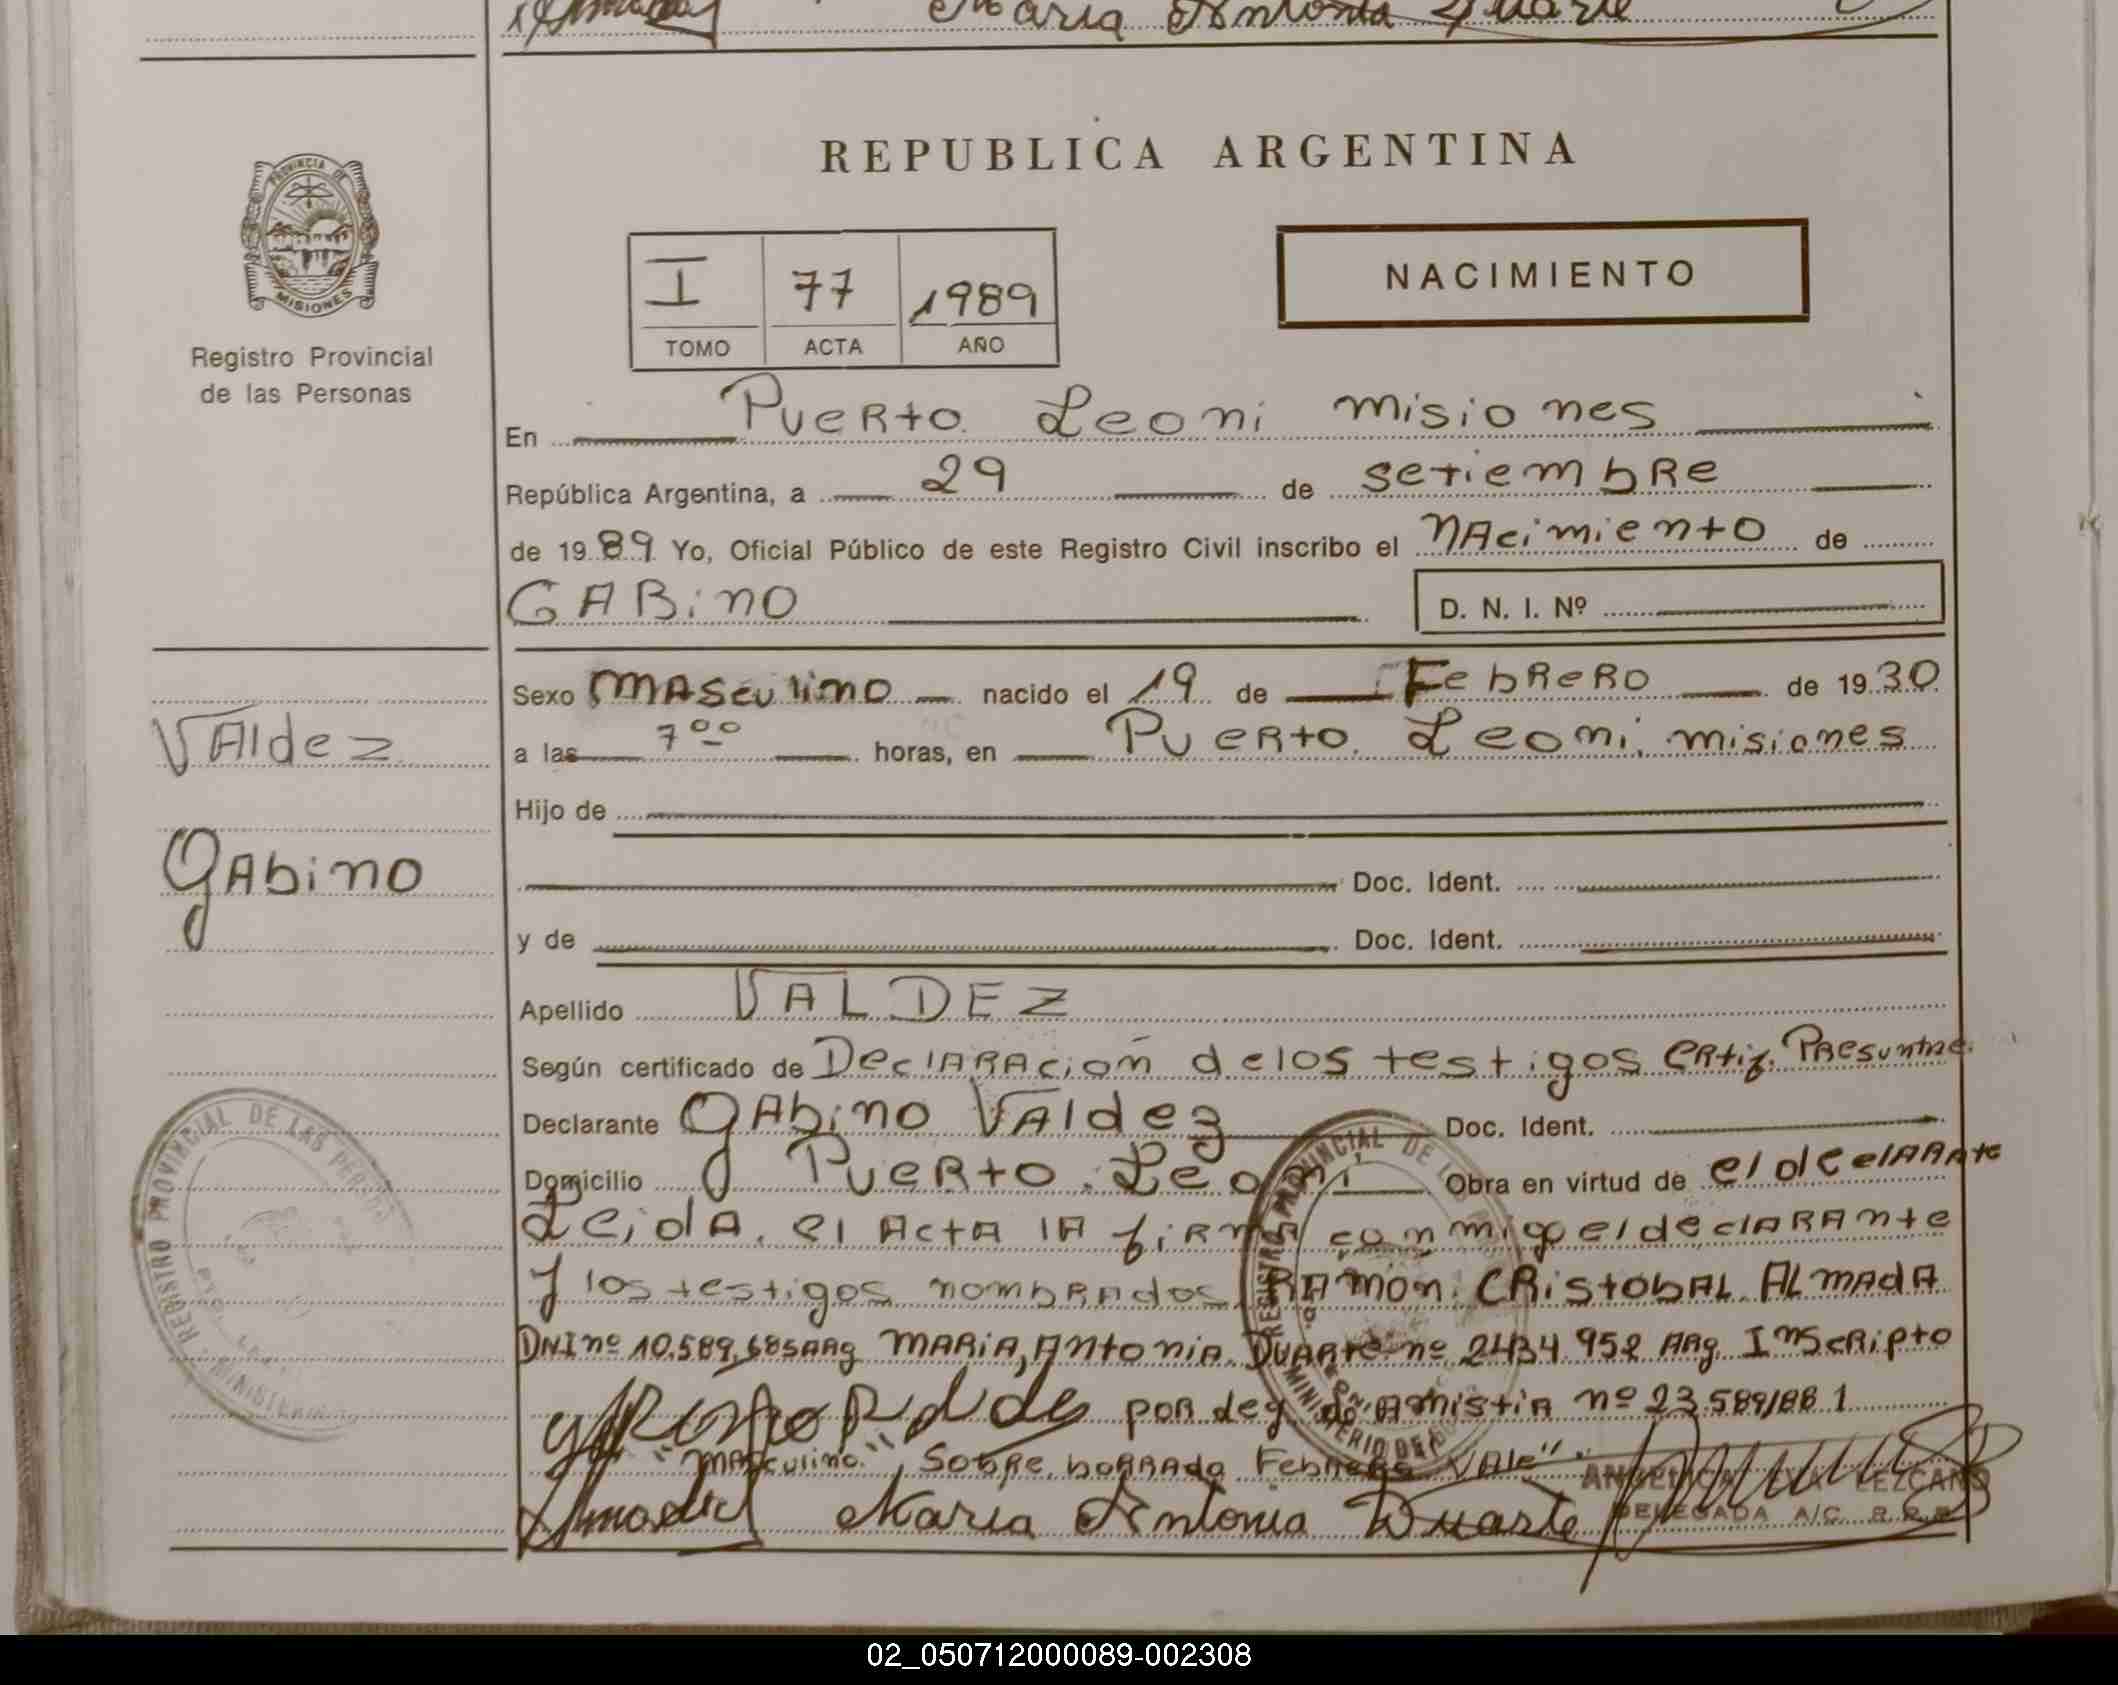 Maria Antonia Duarte
PROVINCIA DE
MISIONES
Registro Provincial
de las Personas
REPUBLICA ARGENTINA
I 77 1989
TOMO ACTA AÑO
NACIMIENTO
En Puerto Leoni misiones
República Argentina, a 29 de setiembre
de 1989 Yo, Oficial Público de este Registro Civil inscribo el nacimiento de
GABino
D. N. I. Nº
Sexo masculino nacido el 19 de Febrero de 1930
a las 7ºº horas, en Puerto Leoni misiones
Hijo de
Doc. Ident.
y de Doc. Ident.
Apellido VALDEZ
Según certificado de Declaración delos testigos Certif. Presuntne.
Declarante Gabino Valdez Doc. Ident.
Domicilio Puerto Leoni Obra en virtud de el declarante
Leida el Acta la firma conmigo el declarante
y los testigos nombrados RAMON CRistobAL ALmadA
DNI nº 10.589.685 ARg MARiA, Antonia DUARte nº 2434 952 ARg Inscripto
por dec. de Amistia nº 23.589/88 1
"masculino" Sobre borrado Febrero Vale".
Maria Antonia Duarte
ANGELICA EVA LEZCANO
DELEGADA A/C R.P.P.
Valdez
Gabino
REGISTRO PROVINCIAL DE LAS PERSONAS
MINISTERIO
REGISTRO PROVINCIAL DE LAS
MINISTERIO DE
02_050712000089-002308